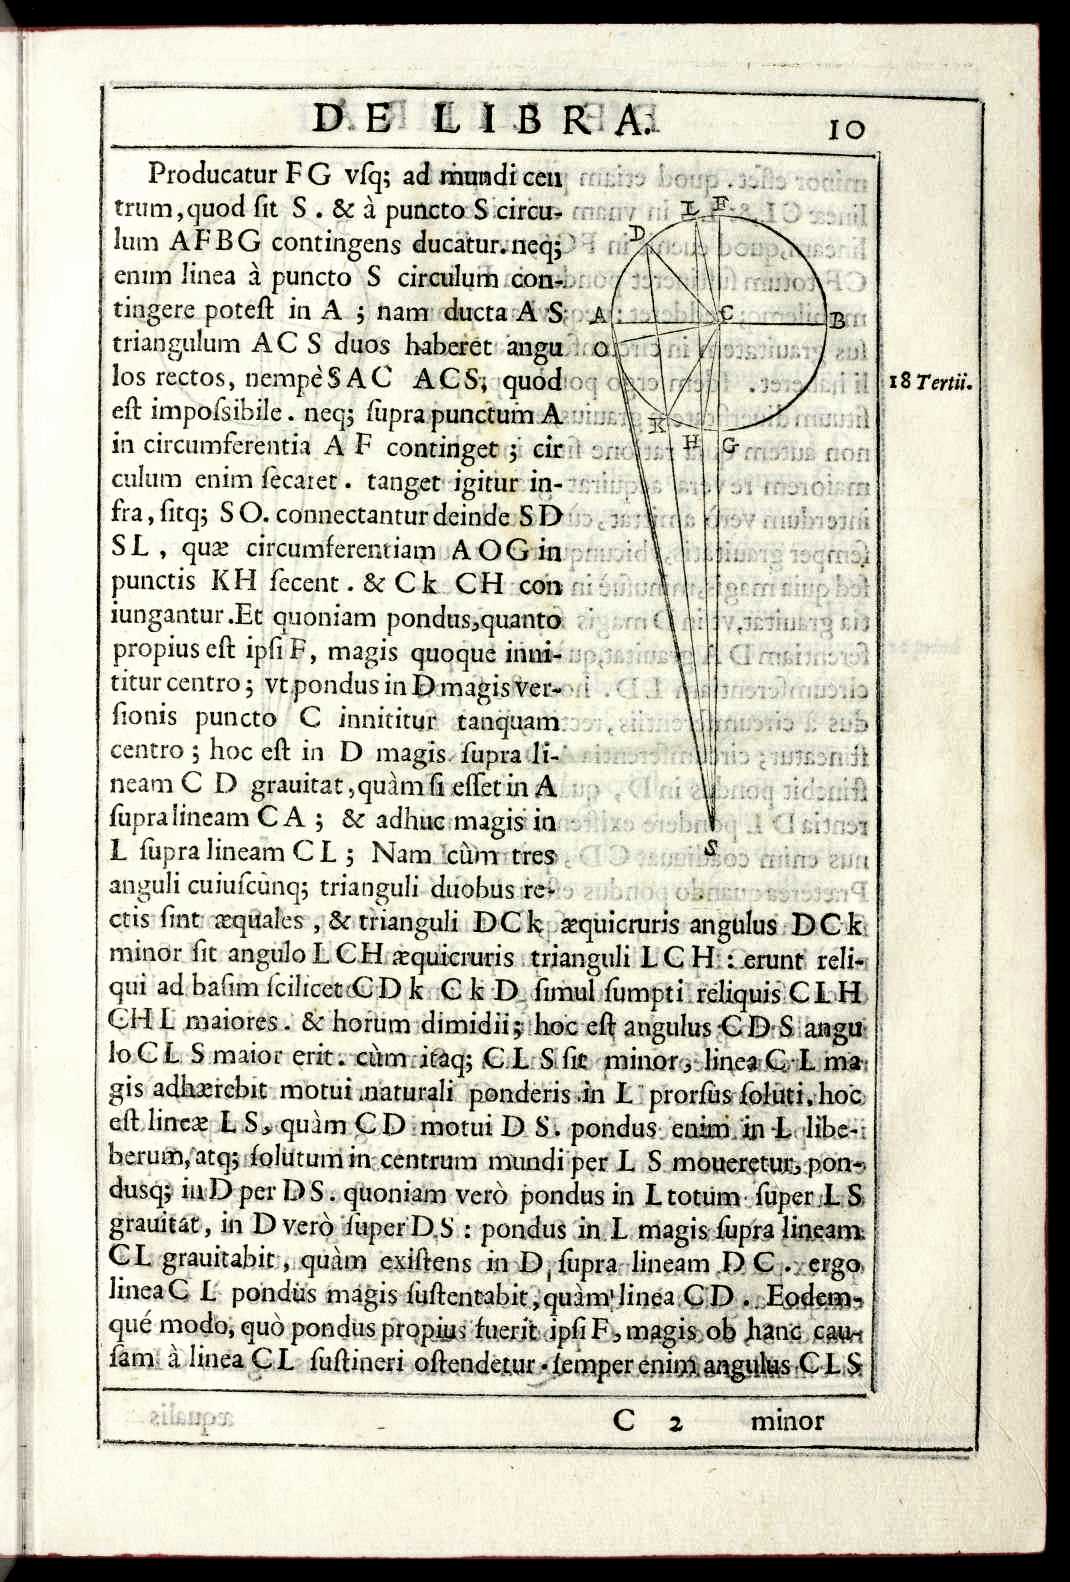 DE LIBRA. 10
Producatur F G vſq; ad mundi cen
trum, quod ſit S. & à puncto S circu-
lum A F B G contingens ducatur. neq;
enim linea à puncto S circulum con-
tingere poteſt in A ; nam ducta A S
triangulum A C S duos haberet angu
los rectos, nempè S A C A C S, quod
eſt impoſsibile. neq; ſupra punctum A
in circumferentia A F continget ; cir
culum enim ſecaret. tanget igitur in-
fra, ſitq; S O. connectantur deinde S D
S L , quæ circumferentiam A O G in
punctis K H ſecent. & C k C H con
iungantur. Et quoniam pondus, quanto
propius eſt ipſi F, magis quoque inni-
titur centro ; vt pondus in D magis ver-
ſionis puncto C innititur tanquam
centro ; hoc eſt in D magis ſupra li-
neam C D grauitat, quàm ſi eſſet in A
ſupra lineam C A ; & adhuc magis in
L ſupra lineam C L ; Nam cùm tres
anguli cuiuſcùnq; trianguli duobus re-
ctis ſint æquales , & trianguli D C k æquicruris angulus D C k
minor ſit angulo L C H æquicruris trianguli L C H : erunt reli-
qui ad baſim ſcilicet C D k C k D ſimul ſumpti reliquis C L H
C H L maiores. & horum dimidii ; hoc eſt angulus C D S angu
lo C L S maior erit. cùm itaq; C L S ſit minor, linea C L ma
gis adhærebit motui naturali ponderis in L prorſus ſoluti, hoc
eſt lineæ L S, quàm C D motui D S. pondus enim in L libe-
berum, atq; ſolutum in centrum mundi per L S moueretur, pon-
dusq; in D per D S. quoniam verò pondus in L totum ſuper L S
grauitat, in D verò ſuper D S : pondus in L magis ſupra lineam
C L grauitabit, quàm exiſtens in D ſupra lineam D C. ergo
linea C L pondus magis ſuſtentabit, quàm linea C D. Eodem-
qué modo, quò pondus propius fuerit ipſi F, magis ob hanc cau-
ſam à linea C L ſuſtineri oſtendetur. ſemper enim angulus C L S
C 2 minor
18 Tertii.
L F
D
A C B
O
K H G
S